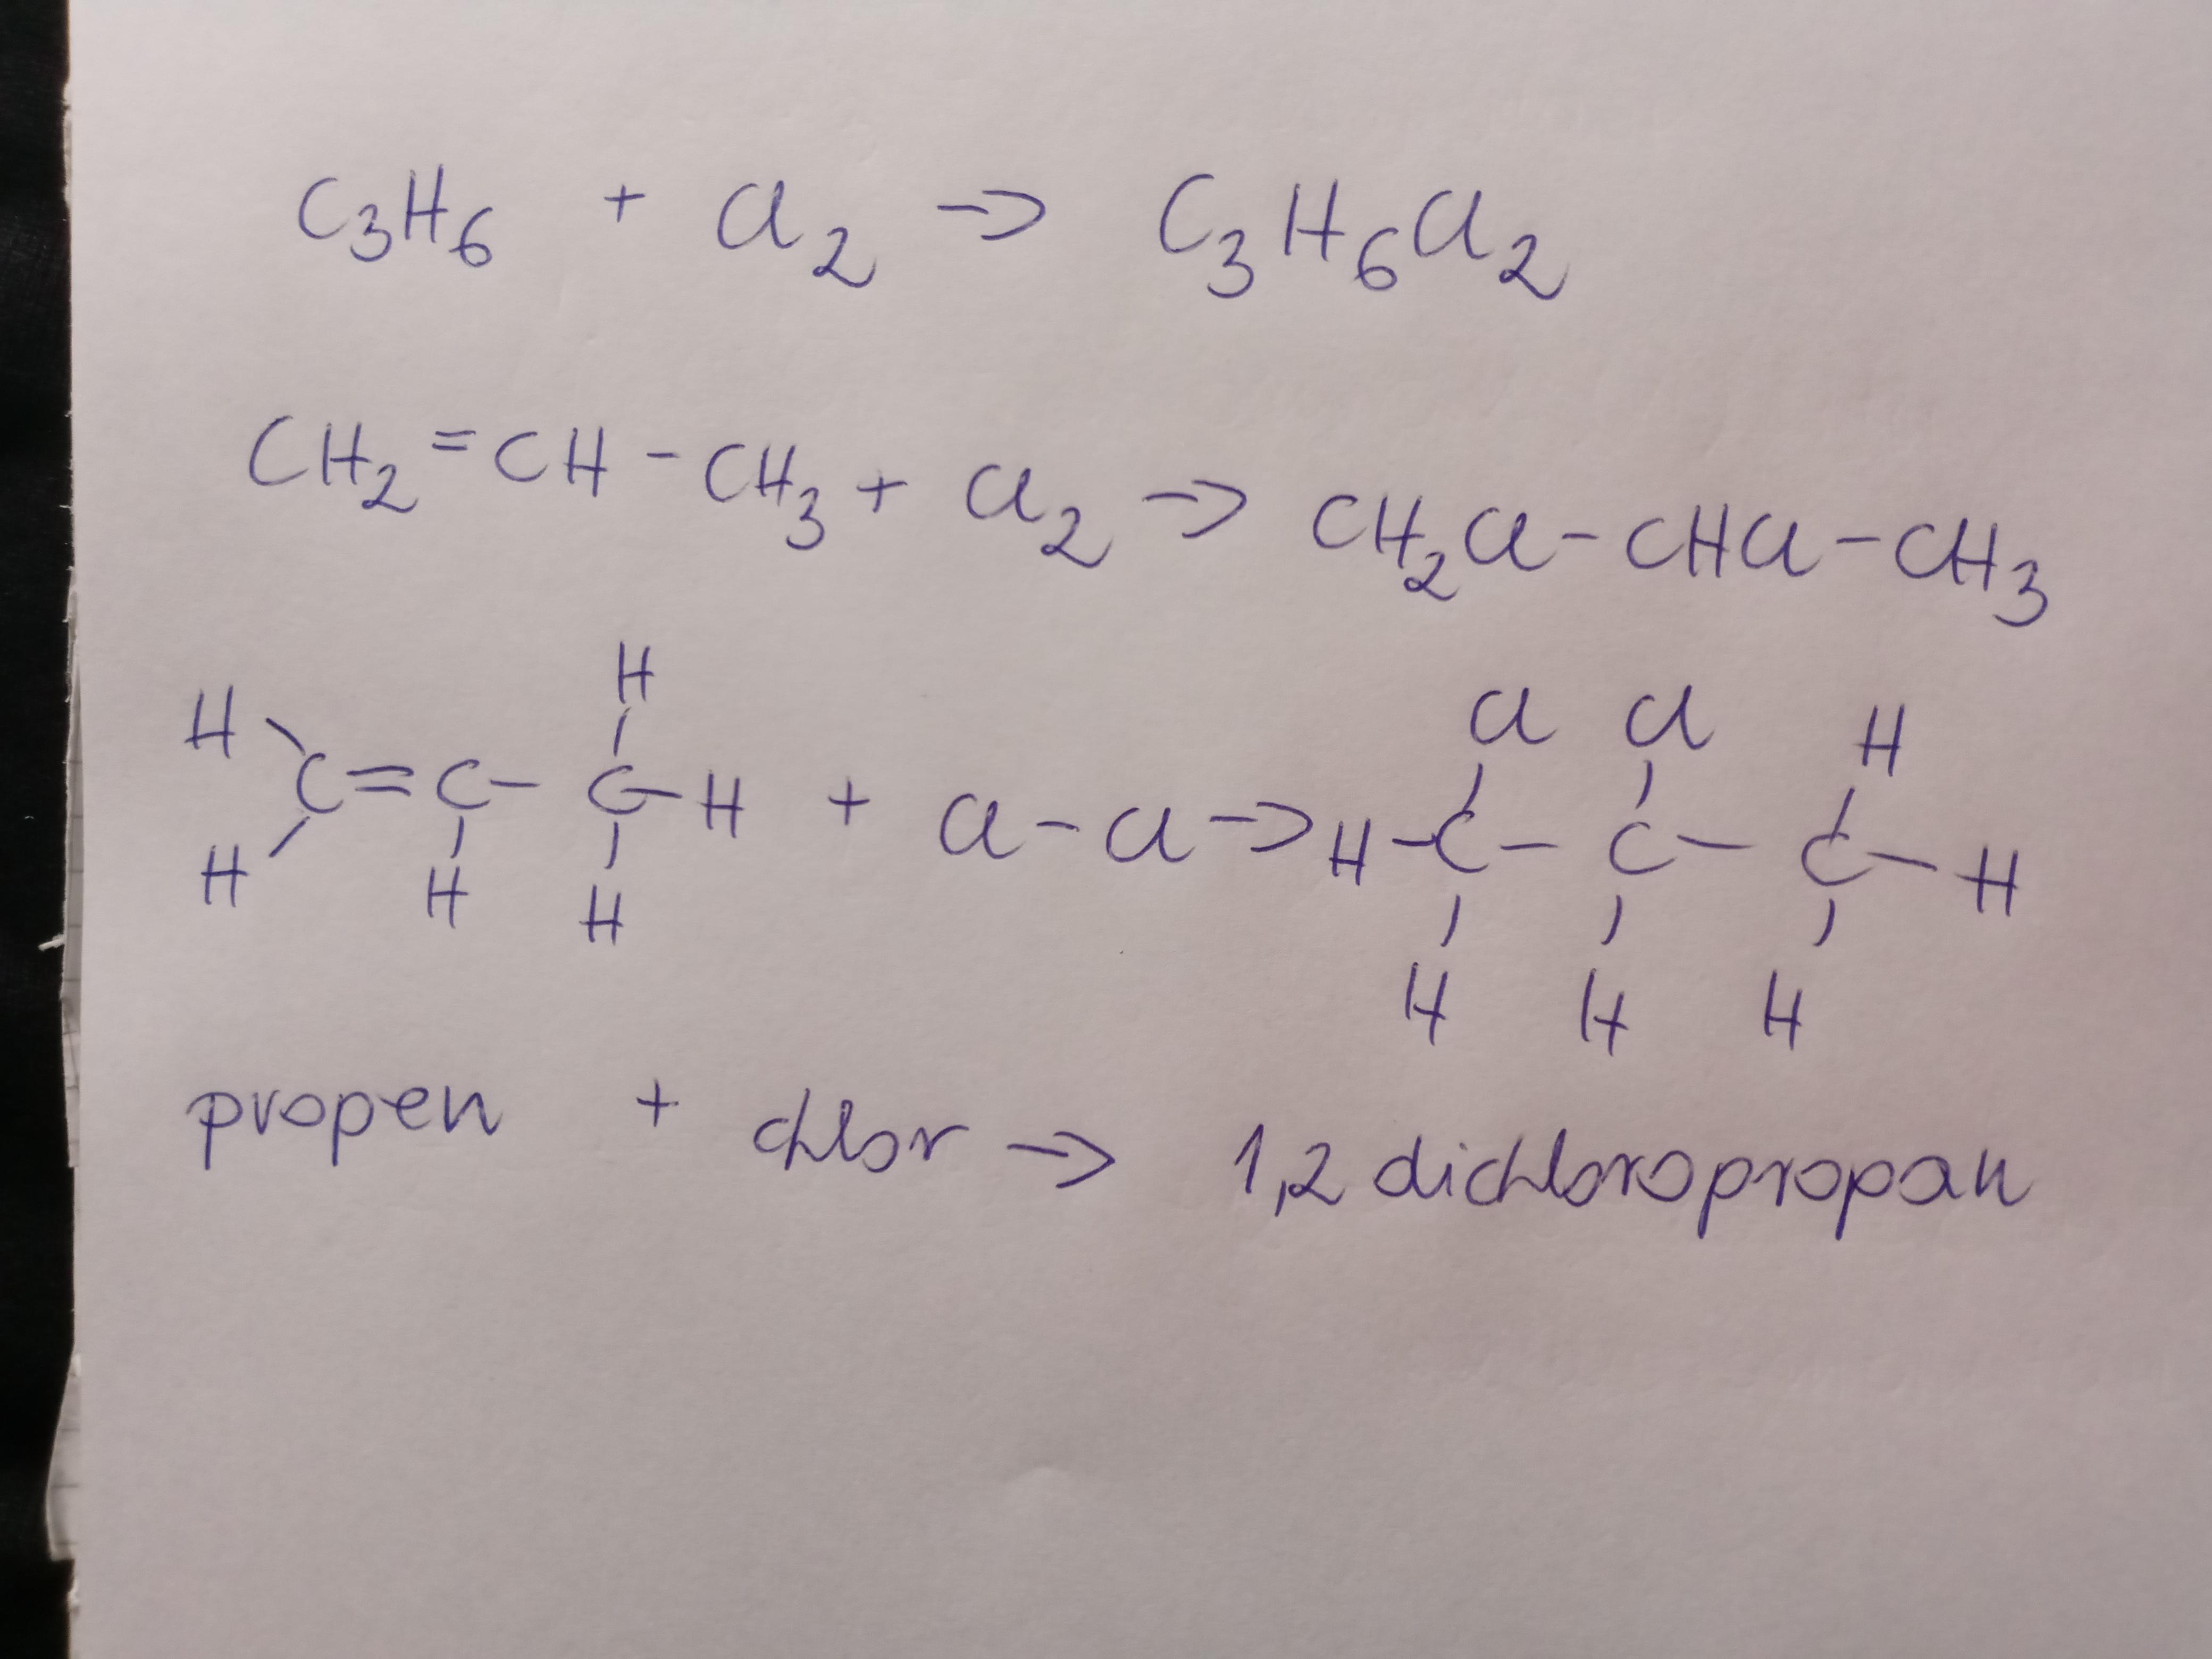 C₃H₆ + Cl₂ → C₃H₆Cl₂
CH₂=CH-CH₃ + Cl₂ → CH₂Cl-CHCl-CH₃
H Cl Cl H
H
C=C-C-H + Cl-Cl → H-C-C-C-H
H H H
H H H
propen + chlor → 1,2 dichloropropan